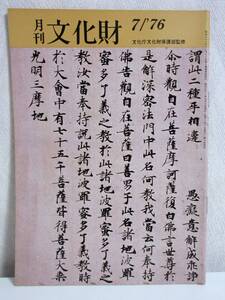 月刊 文化財
7/76
文化庁文化財保護部監修
謂此二種平相遍 愚癡意解成就
尒時觀自在菩薩摩訶薩復白佛言世尊於
是解深密法門中此名何教我當云何奉持
佛告觀自在菩薩曰善男子此名諸地波羅
蜜多了義之教於此諸地波羅蜜多了義之
教汝當奉持說此諸地波羅蜜多了義教時
於大會中有七十五千菩薩皆得菩薩大乘
光明三摩地